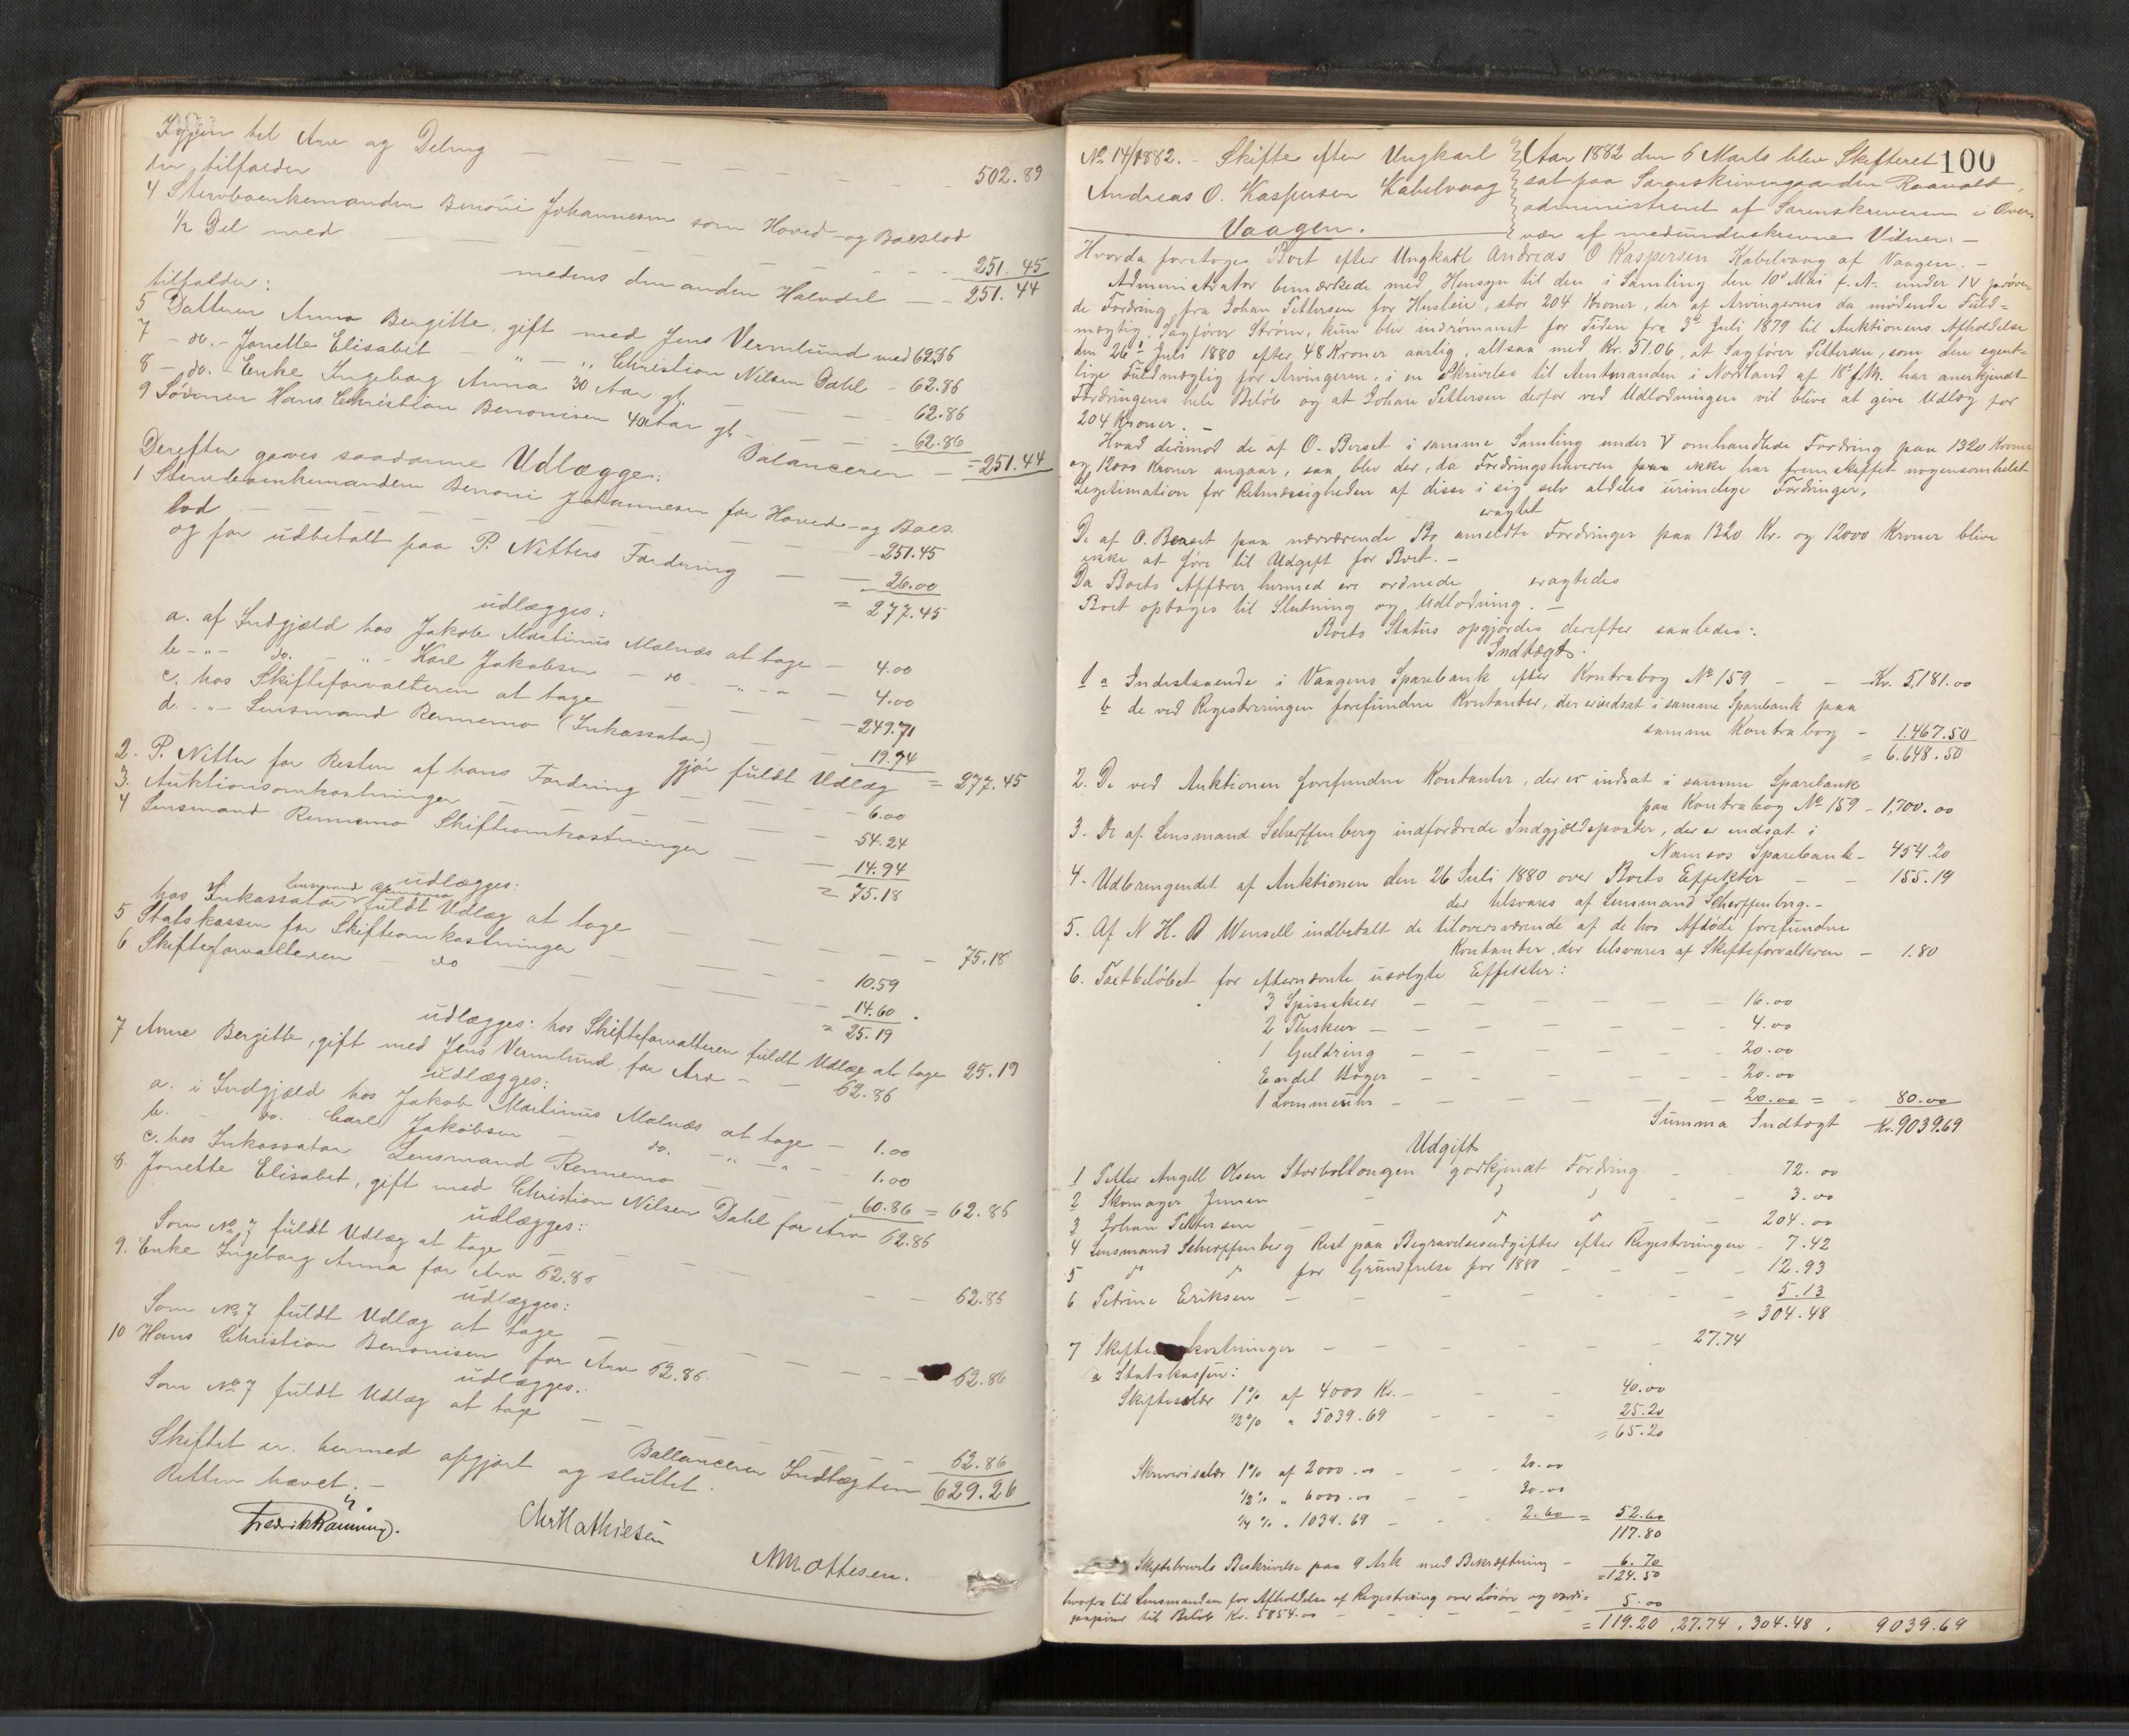 Igjen til Arv og Deling — — — 502.89
der tilfalder
4 Stervboenkemanden Benoni Johannesen som Hoved- og Boeslod
1/2 Del med — — — 251.45
medens den anden Halvdel — - 251.44
tilfalder:
5 Datteren Anna Bergitte, gift med Jens Vermlund med 62.86
7 - do. - Jonette Elisabet - " - " Christian Nilsen Dahl - 62.86
8 - do. - Enke Ingeborg Anna 30 Aar gl. — 62.86
9 Sønnen Hans Christian Benonisen 40 Aar gl. — 62.86
Balancerer — = 251.44
Derefter gaves saadanne Udlægge:
1 Stervboenkemanden Benoni Johannesen for Hoved- og Boes-
lod — — — 251.45
og for udbetalt paa P. Nitters Fordring — — 26.00
= 277.45
udlægges:
a. af Indgjæld hos Jakob Martinus Malnæs at tage — 4.00
b - " - do. - " - Karl Jakobsen - do - " - " — 4.00
c. hos Skifteforvalteren at tage — 249.71
d. - " - Lensmand Rennemo (Inkassator) — 19.74
gjør fuldt Udlæg = 277.45
2. P. Nitter for Resten af hans Fordring — 6.00
3. Auktionsomkostninger — 54.24
4 Lensmand Rennemo Skifteomkostninger — 14.94
= 75.18
udlægges:
hos Inkassator Lensmand Rennemo fuldt Udlæg at tage — 75.18
5 Statskassen for Skifteomkostninger — 10.59
6 Skifteforvalteren - do — 14.60
= 25.19
udlægges: hos Skifteforvalteren fuldt Udlæg at tage 25.19
7 Anne Bergitte, gift med Jens Vermlund for Arv — 62.86
udlægges:
a. i Indgjæld hos Jakob Martinus Malnæs at tage — 1.00
b. - do. Carl Jakobsen - do. - " - " - 1.00
c. hos Inkassator Lensmand Rennemo — 60.86 = 62.86
8. Jonette Elisabet, gift med Christian Nilsen Dahl for Arv 62.86
udlægges:
Som No 7 fuldt Udlæg at tage — 62.86
9. Enke Ingeborg Anna for Arv 62.86
udlægges:
Som No 7 fuldt Udlæg at tage — 62.86
10 Hans Christian Benonisen for Arv 62.86.
udlægges.
Som No 7 fuldt Udlæg at tage — 62.86
Ballancerer Indtægten 629.26
Skiftet er hermed afgjort og sluttet.
Retten hævet. —
Chr Mathiesen
N. M. Ottesen.
100
No 14/1882. - Skifte efter Ungkarl
Andreas O. Kaspersen Kabelvaag
Vaagen.
Aar 1882 den 6 Marts blev Skifteret
sat paa Sorenskrivergaarden
administreret af Sorenskriveren i Over-
vær af medunderskrevne Vidner. —
Hvorda foretoges Boet efter Ungkarl Andreas O Kaspersen Kabelvaag af Vaagen. —
Administrator bemærkede med Hensyn til den i Samling den 10de Mai f. A. under IV prøve-
de Fordring fra Johan Pettersen for Husleie, stor 204 Kroner, der af Arvingernes da mødende Fuld-
mægtig, Sagfører Strøm, kun blev indrømmet for Tiden fra 3die Juli 1879 til Auktionens Afholdelse
den 26de Juli 1880 efter 48 Kroner aarlig, altsaa med Kr. 51.06, at Sagfører Pettersen, som den egent-
lige Fuldmægtig for Arvingerne, i en Skrivelse til Amtmanden i Nordland af 18de f.M. har anerkjendt
Fordringens hele Beløb og at Johan Pettersen derfor ved Udlodningen vil blive at give Udlæg for
204 Kroner. —
Hvad derimod de af O. Berset i samme Samling under V omhandlede Fordring paa 1320 Kroner
og 12000 Kroner angaar, saa blev der, da Fordringshaveren ikke har fremskaffet nogensomhelst
Legitimation for Retmæssigheden af disse i sig selv aldeles urimelige Fordringer,
eragtet
De af O. Berset paa nærværende Bo anmeldte Fordringer paa 1320 Kr. og 12000 Kroner blive
ikke at føre til Udgift for Boet. —
Da Boets Affærer hermed ere ordnede eragtedes
Boet optages til Slutning og Udlodning. —
Boets Status opgjordes derefter saaledes:
Indtægt.
1 a Indestaaende i Vaagens Sparebank efter Kontrabog No 159 — — Kr. 5,181.00
b de ved Registreringen forefundne Kontanter, der er indsat i samme Sparebank paa
samme Kontrabog — 1.467.50
= 6.648.50
2. De ved Auktionen forefundne Kontanter, der er indsat i samme Sparebank
paa Kontrabog No 159 — 1,700.00
3. De af Lensmand Scherffenberg indfordrede Indgjældsposter, der er indsat i
Namsos Sparebank — 454.20
4. Udbringendet af Auktionen den 26 Juli 1880 over Boets Effekter — — 155.19
der tilsvares af Lensmand Scherffenberg. —
5. Af N. H. Wensell indbetalt de tiloversværende af de hos Afdøde forefundne
Kontanter, der tilsvares af Skifteforvalteren — 1.80
6. Taxtbeløbet for efternævnte usolgte Effekter:
3 Spiseskeer — 16.00
2 Theskeer — 4.00
1 Guldring — 20.00
Endel Bøger — 20.00
1 Lommeuhr — 20.00 = 80.00
Summa Indtægt Kr. 9039.69
Udgift
1 Petter Angell Olsen Storvollongen godkjendt Fordring — 72.00
2 Skomager Jensen — do do — 3.00
3 Johan Pettersen — do do — 204.00
4 Lensmand Scherffenberg Rest paa Begravelsesudgifter efter Registreringen — 7.42
5 do do for Grundfrelse for 1880 — 12.93
6 Petrine Eriksen — 5.13
= 304.48
7 Skifteomkostninger — 27.74
a Statskassen:
Skiftesalær 1% af 4000 Kr. — 40.00
1/2% " 5039.69 — 25.20
= 65.20
Skriversalær 1% af 2000.00 — 20.00
1/2% " 6000.00 — 30.00
1/4% " 1034.69 — 2.60 = 52.60
117.80
Skiftebrevets Beskrivelse paa 9 Ark med Bekræftning — 6.70
= 124.50
hvorfra til Lensmanden for Afholdelse af Registrering over Løsøre og værdi-
papirer til Beløb Kr. 5854.00 — 5.00
= 119.20, 27.74, 304.48, 9039.69